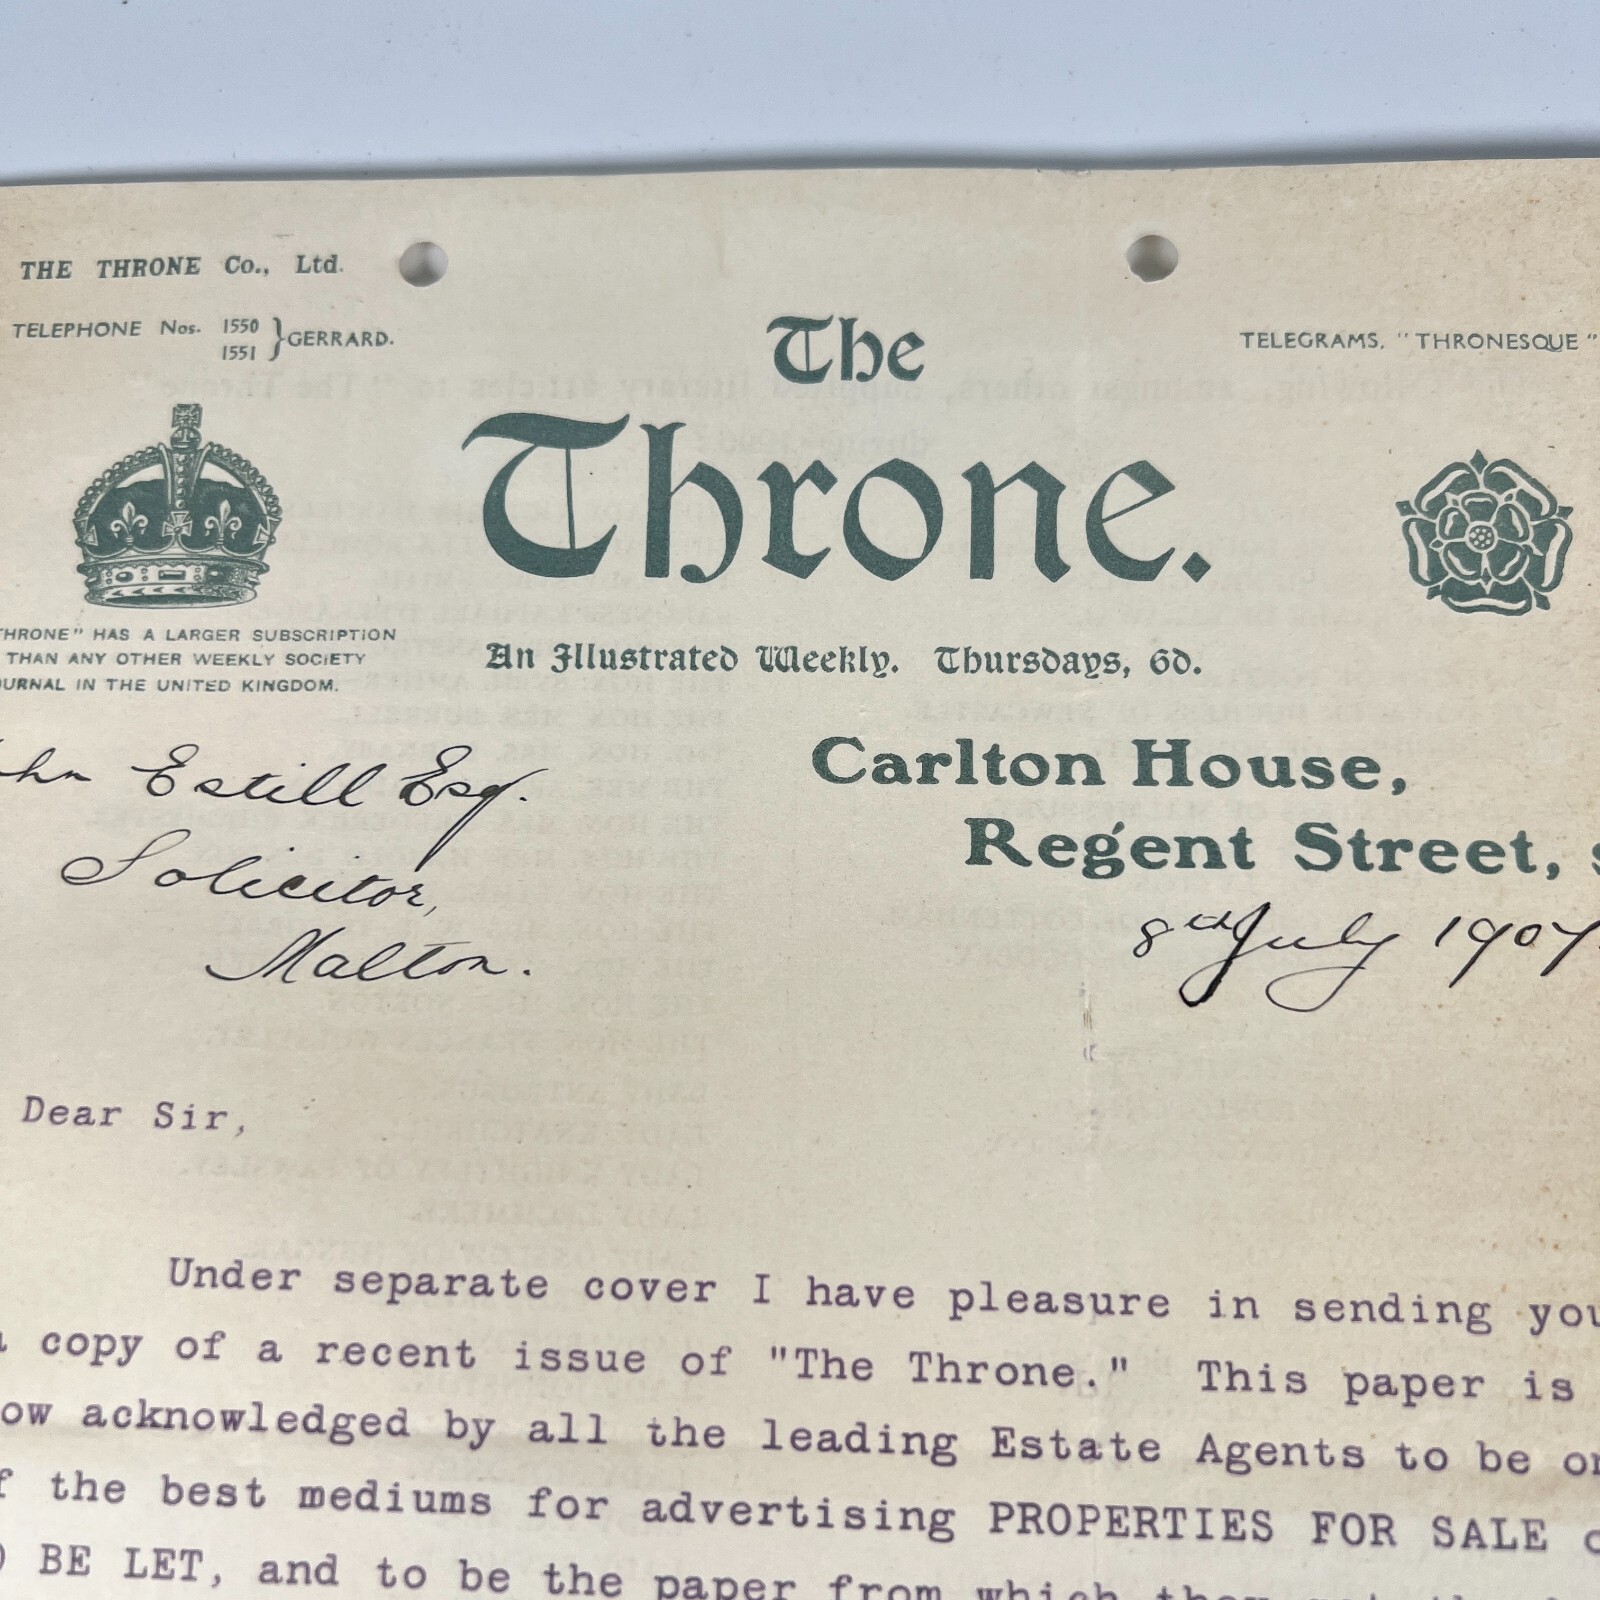 THE THRONE Co., Ltd.
TELEPHONE Nos. 1550
1551 } GERRARD.
TELEGRAMS, "THRONESQUE"
The
Throne.
THRONE" HAS A LARGER SUBSCRIPTION
THAN ANY OTHER WEEKLY SOCIETY
JOURNAL IN THE UNITED KINGDOM.
An Illustrated Weekly. Thursdays, 6d.
Carlton House,
Regent Street,
8th July 1907.
Estill Esq.
Solicitor,
Malton.
Dear Sir,
Under separate cover I have pleasure in sending you
a copy of a recent issue of "The Throne." This paper is
now acknowledged by all the leading Estate Agents to be
of the best mediums for advertising PROPERTIES FOR SALE
BE LET, and to be the paper from which they